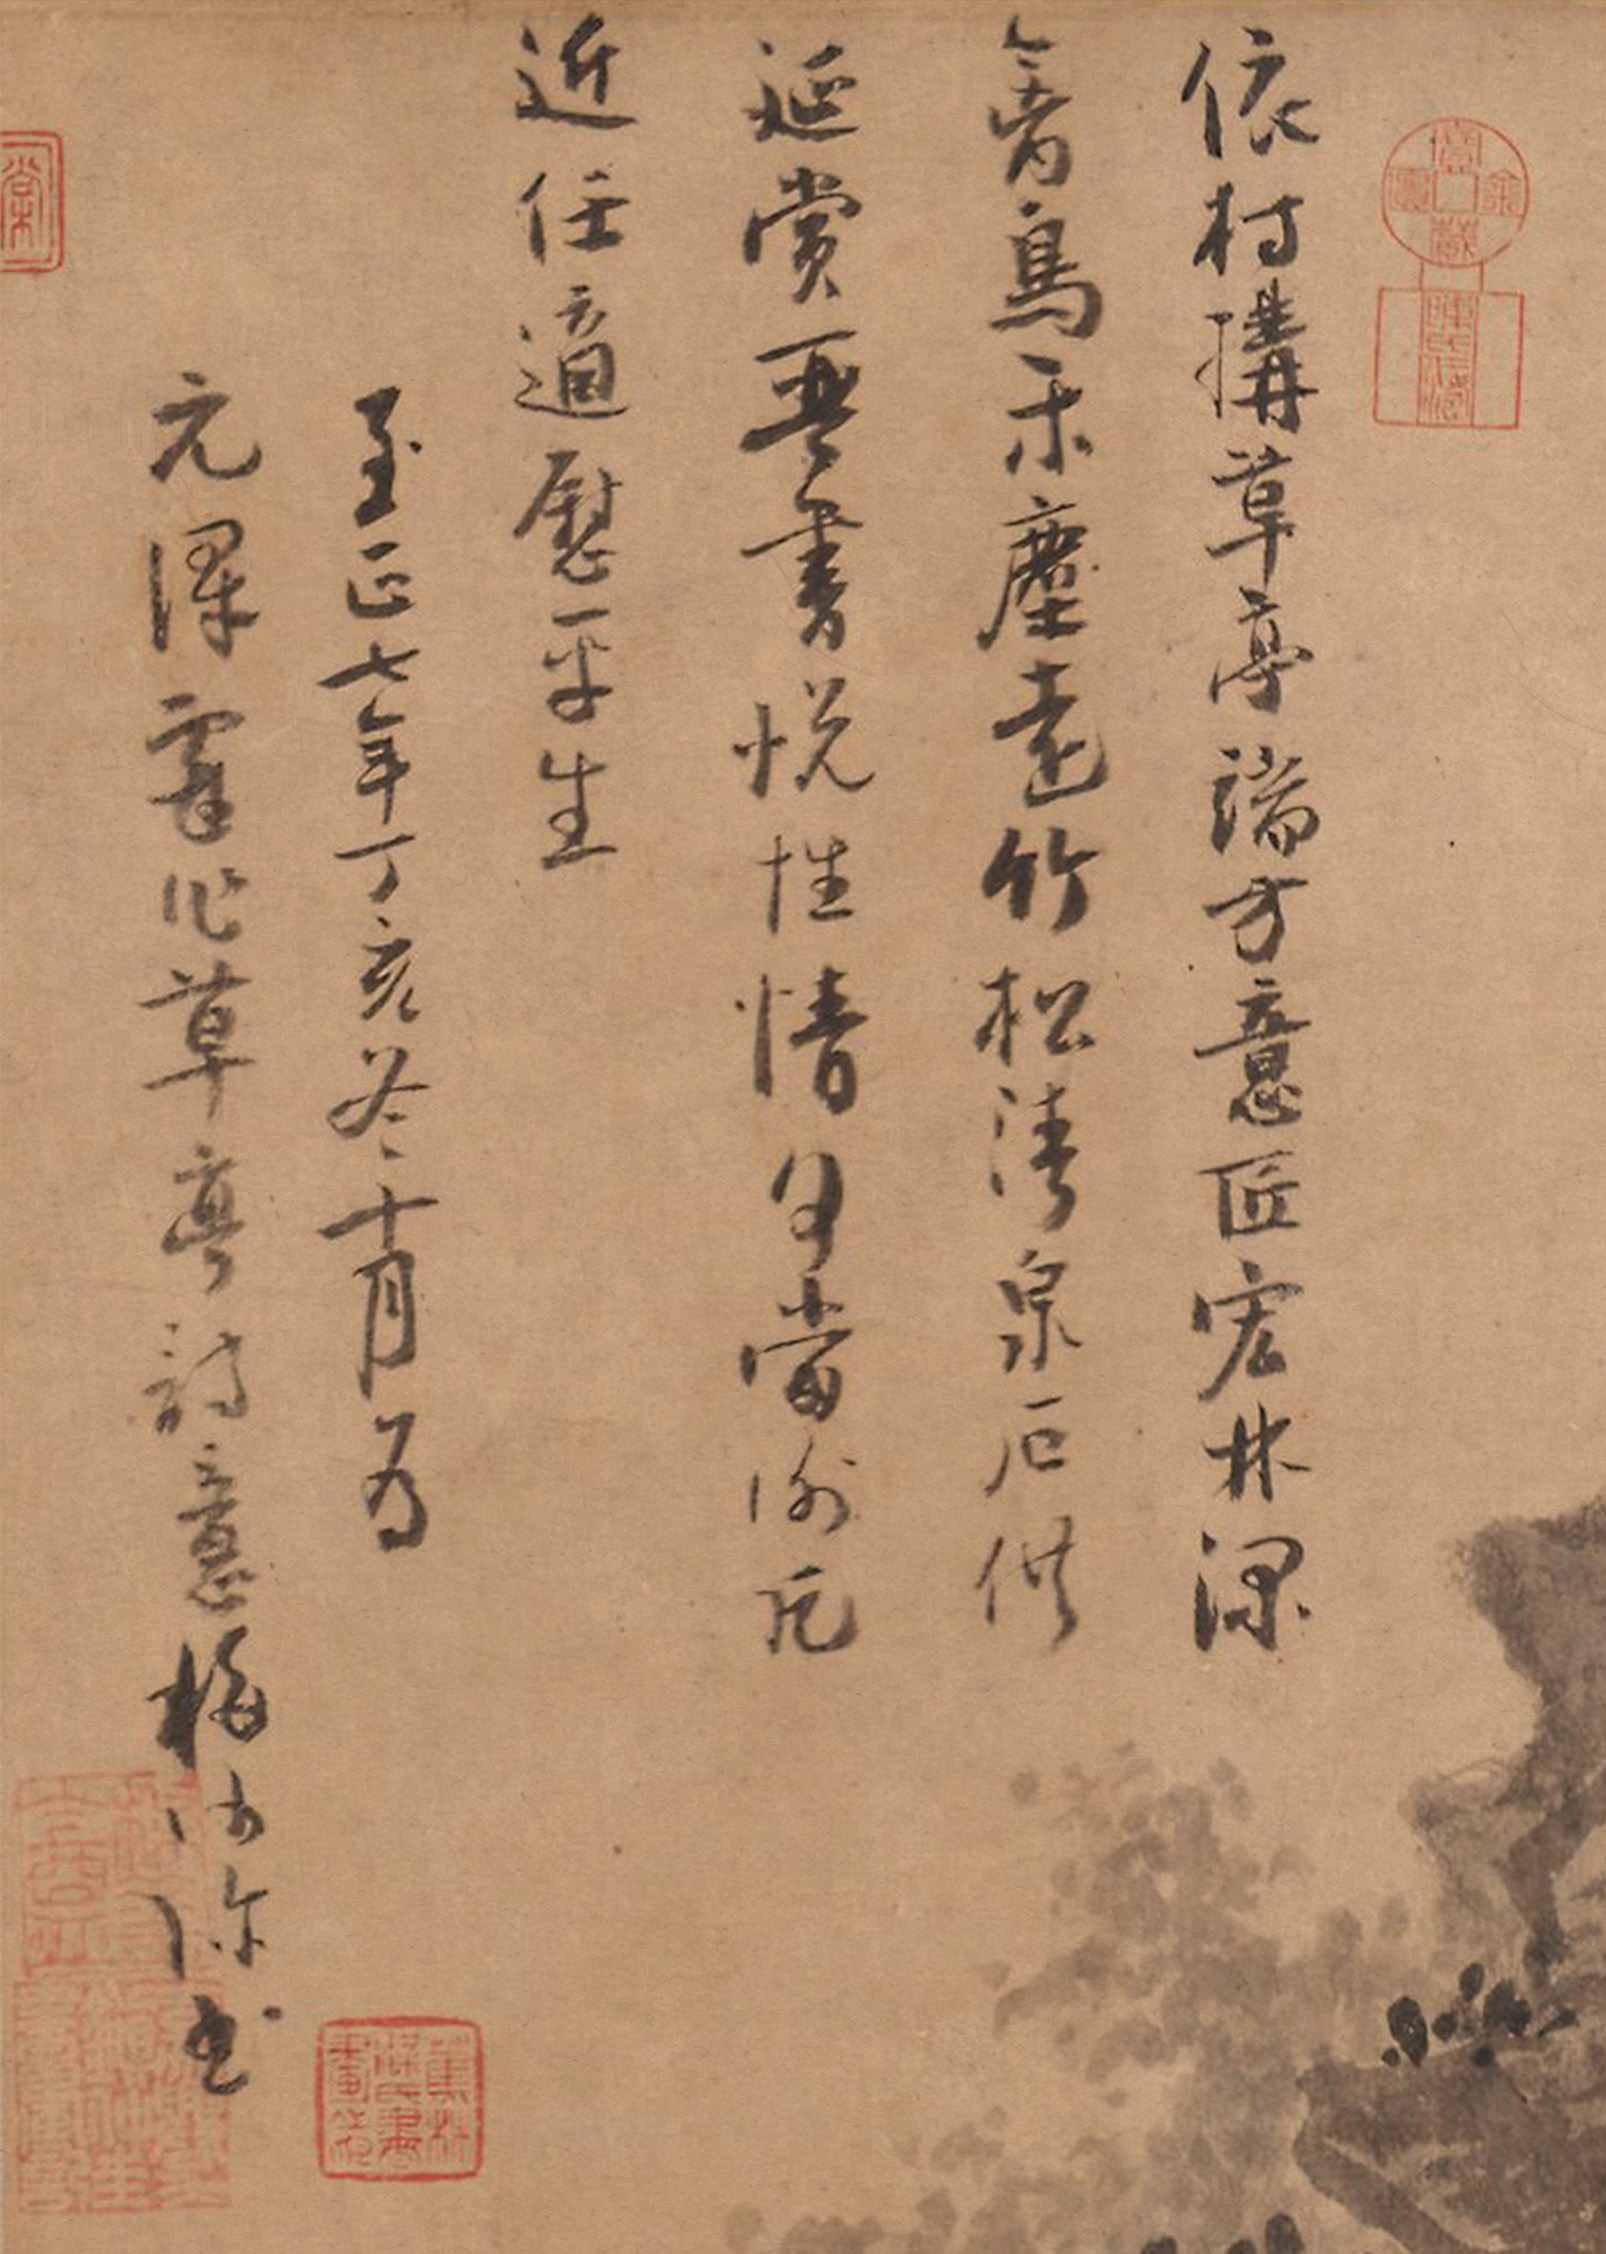 依村構草亭端方意匠宏林深
禽鳥樂塵遠竹松清泉石供
延賞琴書悅性情何當謝凡
近任適慰平生
至正七年丁亥冬十月為
元澤戲作草亭詩意梅沙彌書